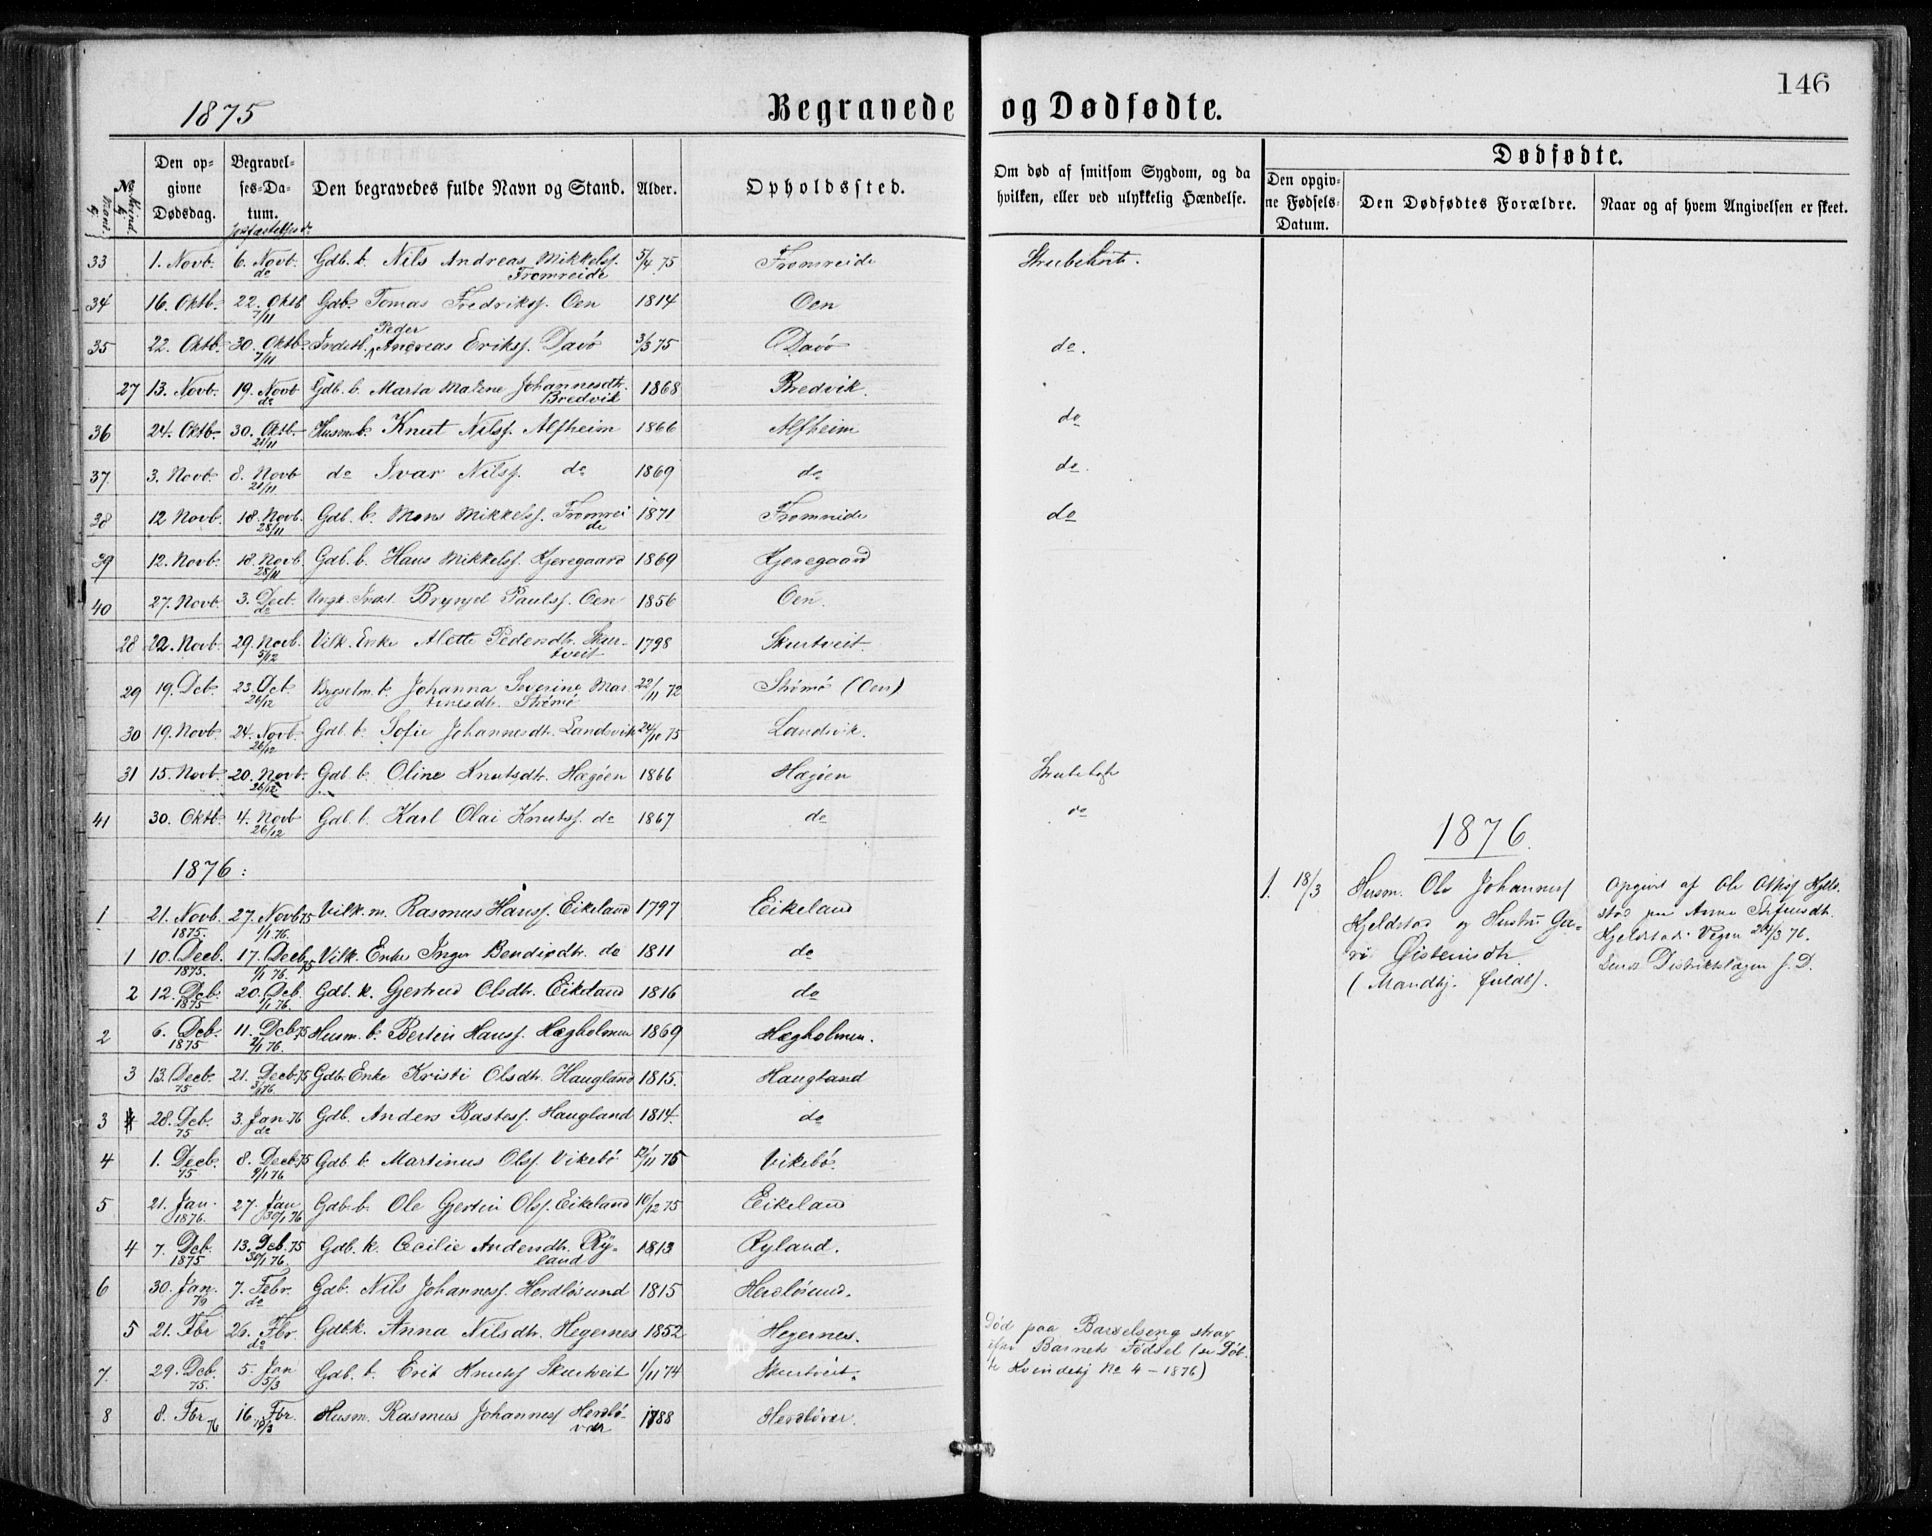 146
1875
Begravede og Dødfødte.
No Mandkj. Kvindkj.
Den opgivne Dødsdag.
Begravelses-Datum.
Jordfæstelses do
Den begravedes fulde Navn og Stand.
Alder.
Opholdssted.
Om død af smitsom Sygdom, og da hvilken, eller ved ulykkelig Hændelse.
Dødfødte.
Den opgivne Fødsels-Datum.
Den Dødfødtes Forældre.
Naar og af hvem Angivelsen er skeet.
33 1. Novb. 6. Novb. do Gdb. b. Nils Andreas Mikkelsf. Fromreide 5/4 75 Fromreide Strubehost.
34 16. Oktb. 22. Oktb 7/11 Gdb. Tomas Fredriksf. Oen 1814 Oen
35 22. Oktb. 30. Oktb. 7/11 Inderstb. Peder Andreas Eriksf. Davø 3/3 75 Davø do.
27 13. Novb. 19. Novb do Gdb. b. Marta Malene Johannesdtr. Bredvik 1868 Bredvik.
36 24. Oktb. 30. Oktb. 21/11 Husm. b. Knut Nilsf. Alfheim 1866 Alfheim do
37. 3. Novb. 8. Novb 21/11 do Ivar Nilsf. do 1869 do do.
38 12 Novb. 18. Novb. 28/11 Gdb. b. Mons Mikkelsf. Fromreide 1871 Fromreide do
39 12. Novb. 18. Novb. 28/11 Gdb. b. Hans Mikkelsf. Kjeregaard 1869 Kjeregaard
40 27. Novb. 3. Decb. do Ungk. Inderst. Brynjel Paulsf. Oen 1856 Oen.
28 22. Novb. 29. Novb. 5/12 Vilk. Enke Alette Pedersdtr. Skurtveit 1798 Skurtveit.
29 19. Dcb. 23. Dcb. 26/12 Bygselm. b. Johanna Severine Martinesdtr. Strømø 22/11 72 Strømø (Oen)
30 19. Novb. 24. Novb. 26/12 Gdb. b. Sofie Johannesdtr. Landsvik 24/10 75 Landsvik.
31 15. Novb. 20. Novb. 26/12 Gdb. b. Oline Knutsdtr. Hægøen 1866 Hægøen Strubehost
41 30. Oktb. 4. Novb 26/12 Gdb. b. Karl Olai Knutsf. do 1867 do do
1876:
1 21. Novb. 1875. 27. Novb 75 1/1 76. Vilk. m. Rasmus Hansf. Eikeland 1797 Eikeland
1 10. Decb. 1875. 17. Decb. 75 1/1 76. Vilk. Enke Inger Bendixdtr. do 1811 do
2 12. Dcb. 1875 20. Dcb. 1/1 76. Gdb. k. Gjertrud Olsdtr. Eikeland 1816 do
2 6. Dcb. 1875 11. Dcb 75 2/1 76. Husm. b. Bertin Hansf. Hægholmen 1869 Hægholmen.
3 13. Decb. 75 21. Decb. 75 3/1 76. Gdbr. Enke Kristi Olsdtr. Haugland 1815. Haugland
3 28. Dcb. 75 3. Jan 76 do Gdb. Anders Bastesf. Haugland 1814. do
4 1. Decb. 75 8. Decb 75 9/1 76 Gdb. b. Martinus Olsf. Vikebø 12/11 75 Vikebø.
5 21. Jan. 1876. 27. Jan 30/1 76 Gdb. b. Ole Gjertin Olsf. Eikeland 10/12 75 Eikeland
4 7. Dcb. 1875 13. Dcb. 75 30/1 76. Gdb. k. Cecilie Andersdtr. Ryland 1813 Ryland.
6 30. Jan. 76 7. Febr. do Gdb. Nils Johannesf. Herdløsund 1815 Herdløsund.
5 21. Fbr 26. Fbr. do Gdb. k. Anna Nilsdtr. Hegernes 1852 Hegernes. Død paa Barselseng strax efter Barnets Fødsel (se Døbte Kvindekj No 4 - 1876)
7. 29. Dcb. 75. 5. Jan 5/3 Gdb. b. Erik Knutsf Skurtveit 1/11 74 Skurtveit.
8 8. Fbr 76 16 Fbr. 19/3 Husm. Rasmus Johannesf Herdløvær 1788 Herdløvær.
1876.
1. 18/3 Husm. Ole Johannesf
Kjeldstad og Hustru Guro
Østensdtr
(Mandkj. fuldb).
Opgivet af Ole Olsf Kjeldstad
Anna Stefensdtr.
Kjeldstad 26/3 76.